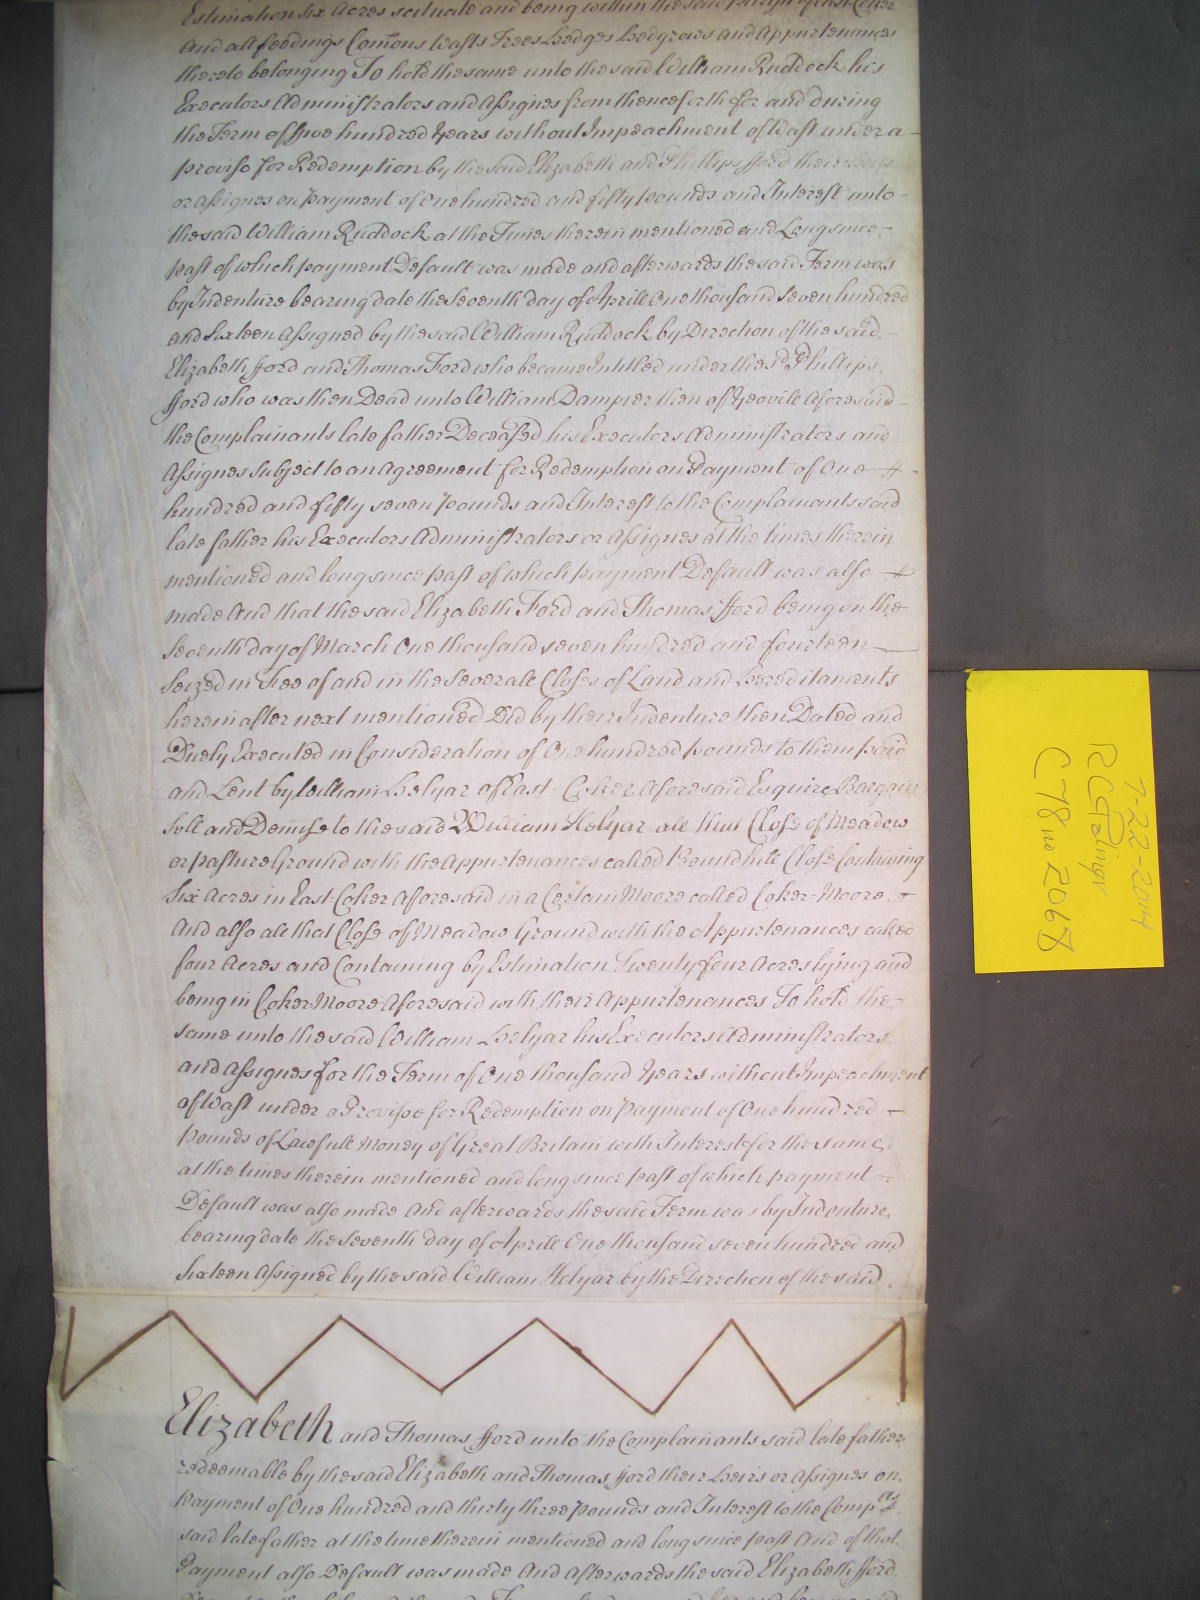 Estimation six Acres scituate and being within the said Parish of East Coker
And all feedings Comons Wasts Trees Hedges Hedgrows and Appurtenances
thereto belonging To hold the same unto the said William Ruddock his
Executors Administrators and Assignes from thenceforth for and during
the Term of ffive hundred Years without Impeachment of Wast under a
proviso for Redemption by the said Elizabeth and Phillips fford their Heirs
or Assignes on payment of One hundred and fifty Pounds and Interest unto
the said William Ruddock at the Times therein mentioned and Long since
past of which payment Default was made and afterwards the said Term was
by Indenture bearing date the Seventh day of Aprill One thousand seven hundred
and Sixteen Assigned by the said William Ruddock by Direction of the said
Elizabeth fford and Thomas Ford who became Intitled under the sd Phillips
fford who was then Dead unto William Dampier then of Yeovill Aforesaid
the Complainants late father Deceased his Executors Administrators and
Assignes Subject to an Agreement for Redemption on Payment of One
hundred and fifty seven Pounds and Interest to the Complainants said
late father his Executors Administrators or Assignes at the times therein
mentioned and long since past of which payment Default was also
made And that the said Elizabeth Ford and Thomas fford being on the
Seventh day of March One thousand seven hundred and fourteen
Seized in Fee of and in the Severall Closes of Land and Hereditaments
herein after next mentioned Did by their Indenture then Dated and
Duely Executed in Consideration of One hundred pounds to them paid
and Lent by William Helyar of East Coker Aforesaid Esquire Bargain
Sell and Demise to the said William Helyar all that Close of Meadow
or pasture Ground with the Appurtenances called Containing
Six Acres in East Coker Afforesaid in a Certain Moore called Coker Moore
And also all that Close of Meadow Ground with the Appurtenances called
four Acres and Containing by Estimation Twenty four Acres lying and
being in Coker Moore Aforesaid with their Appurtenances To hold the
same unto the said William Helyar his Executors Administrators
and Assignes for the Term of One thousand Years without Impeachment
of Wast under a Provisoe for Redemption on Payment of One hundred
Pounds of Lawfull Money of Great Britain with Interest for the same
at the times therein mentioned and long since past of which payment
Default was also made And afterwards the said Term was by Indenture
bearing date the Seventh day of Aprill One thousand seven hundred and
Sixteen Assigned by the said William Helyar by the Direction of the said
Elizabeth and Thomas fford unto the Complainants said late father
redeemable by the said Elizabeth and Thomas fford their Heirs or Assignes on
Payment of One hundred and thirty three Pounds and Interest to the Compts
said late father at the time therein mentioned and long since past And of that
Payment also Default was made And Afterwards the said Elizabeth fford
7-22-2014
RCPalmer
C78 no 2068